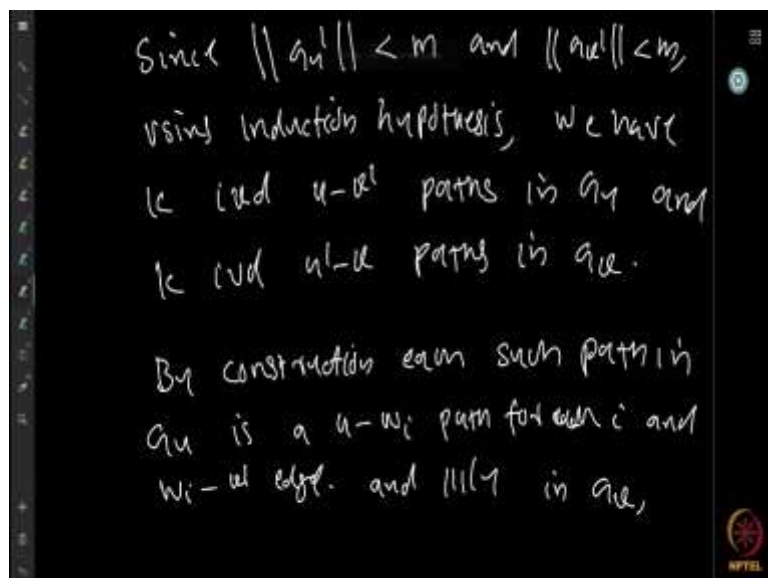 Since ||Gu'|| < m and ||Gv'|| < m,
using induction hypothesis, we have
k ivd u-v' paths in Gu and
k ivd u'-v paths in Gv.
By construction each such path in
Gu is a u-wi path for each i and
wi-v' edge. and |||ly in Gv,
NPTEL